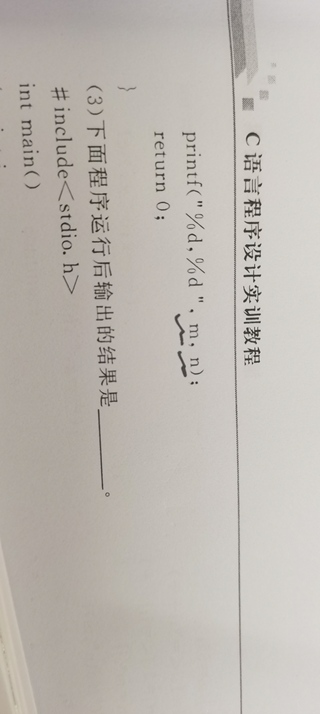 C语言程序设计实训教程
printf("%d,%d",m,n);
return 0;
}
(3)下面程序运行后输出的结果是______。
#include<stdio.h>
int main()